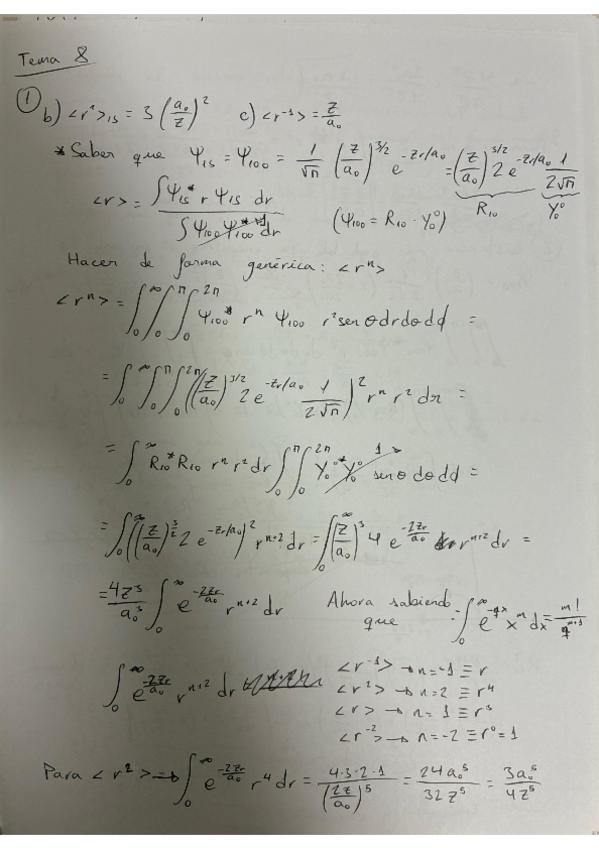 Tema 8
① b) <r²>₁ₛ = 3 (a₀/Z)² c) <r⁻¹> = Z/a₀
* Saber que Ψ₁ₛ = Ψ₁₀₀ = 1/√π (Z/a₀)^3/2 e^-Zr/a₀ = (Z/a₀)^3/2 2 e^-Zr/a₀ 1/2√π
R₁₀ Y₀⁰
<r> = ∫Ψ₁ₛ* r Ψ₁ₛ dr / ∫Ψ₁₀₀Ψ₁₀₀* dr (Ψ₁₀₀ = R₁₀ · Y₀⁰)
Hacer de forma genérica: <rⁿ>
<rⁿ> = ∫₀^∞ ∫₀^π ∫₀^2π Ψ₁₀₀* rⁿ Ψ₁₀₀ r² sen θ dr dθ dϕ =
= ∫₀^∞ ∫₀^π ∫₀^2π ((Z/a₀)^3/2 2 e^-Zr/a₀ 1/2√π)² rⁿ r² dr =
= ∫₀^∞ R₁₀* R₁₀ rⁿ r² dr ∫₀^π ∫₀^2π Y₀⁰* Y₀⁰ sen θ dθ dϕ = 1
= ∫₀^∞ ((Z/a₀)^3/2 2 e^-Zr/a₀)² r^n+2 dr = ∫₀^∞ (Z/a₀)³ 4 e^-2Zr/a₀ r^n+2 dr =
= 4Z³/a₀³ ∫₀^∞ e^-2Zr/a₀ r^n+2 dr Ahora sabiendo que : ∫₀^∞ e^-qx x^m dx = m!/q^m+1
∫₀^∞ e^-2Zr/a₀ r^n+2 dr
<r⁻¹> → n=-1 ≡ r
<r²> → n=2 ≡ r⁴
<r> → n=1 ≡ r³
<r⁻²> → n=-2 ≡ r⁰=1
Para <r²> → ∫₀^∞ e^-2Zr/a₀ r⁴ dr = 4·3·2·1/(2Z/a₀)⁵ = 24a₀⁵/32Z⁵ = 3a₀⁵/4Z⁵